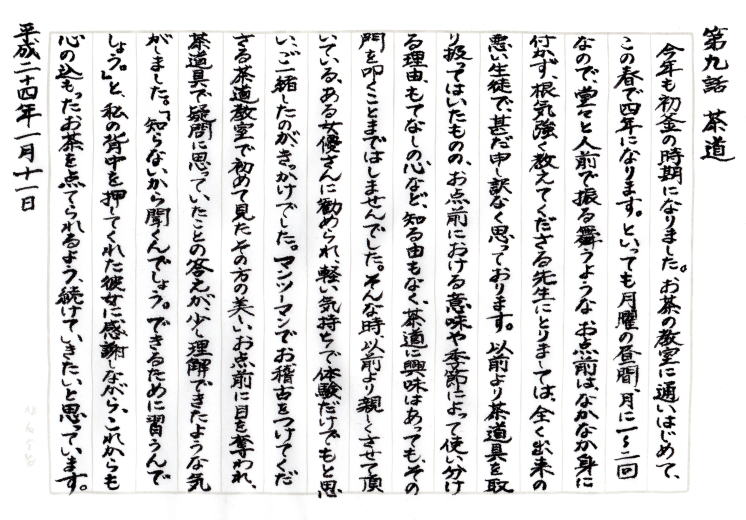 第九話 茶道
今年も初釜の時期になりました。お茶の教室に通いはじめて、
この春で四年になります。といっても月曜の昼間、月に一〜二回
なので、堂々と人前で振る舞うようなお点前は、なかなか身に
付かず、根気強く教えてくださる先生にとりましては、全く出来の
悪い生徒で、甚だ申し訳なく思っております。以前より茶道具を取
り扱ってはいたものの、お点前における意味や季節によって使い分け
る理由、もてなしの心など、知る由もなく、茶道に興味はあっても、その
門を叩くことまではしませんでした。そんな時、以前より親しくさせて頂
いている、ある女優さんに勧められ、軽い気持ちで体験だけでもと思
い、ご一緒したのがきっかけでした。マンツーマンでお稽古をつけてくだ
さる茶道教室で初めて見たその方の美しいお点前に目を奪われ、
茶道具で疑問に思っていたことの答えが、少し理解できたような気
がしました。「知らないから聞くんでしょう。できるために習うんで
しょう。」と、私の背中を押してくれた彼女に感謝しながら、これからも
心の込もったお茶を点てられるよう、続けていきたいと思っています。
平成二十四年一月十一日